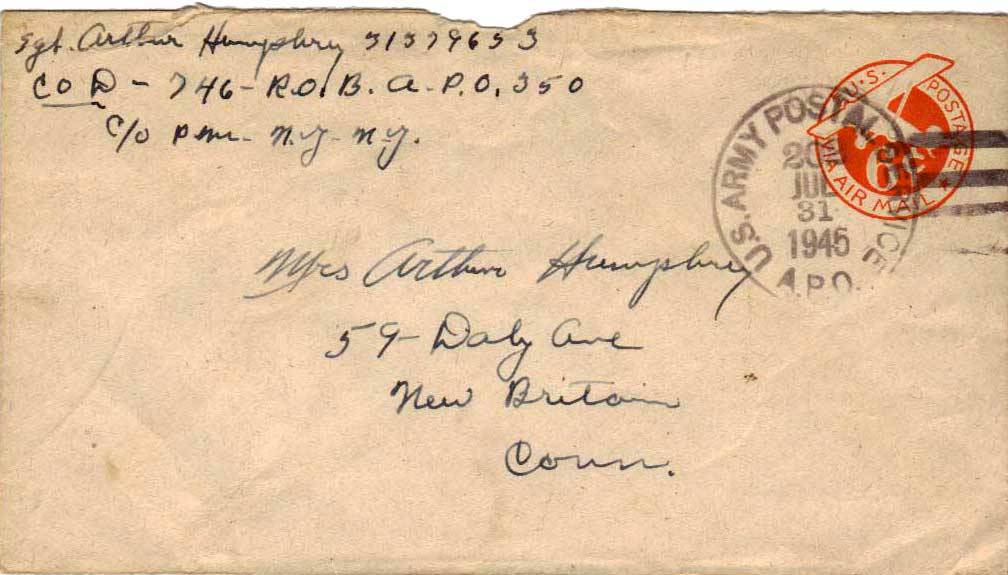 Sgt. Arthur Humphrey 31379653
Co D - 746 - R.O.B. A.P.O. 350
c/o P.M. - N.Y. - N.Y.
U.S. POSTAGE
VIA AIR MAIL
6c
U.S. ARMY POSTAL SERVICE
JUL
31
1945
A.P.O.
Mrs Arthur Humphrey
59 - Daly Ave
New Britain
Conn.